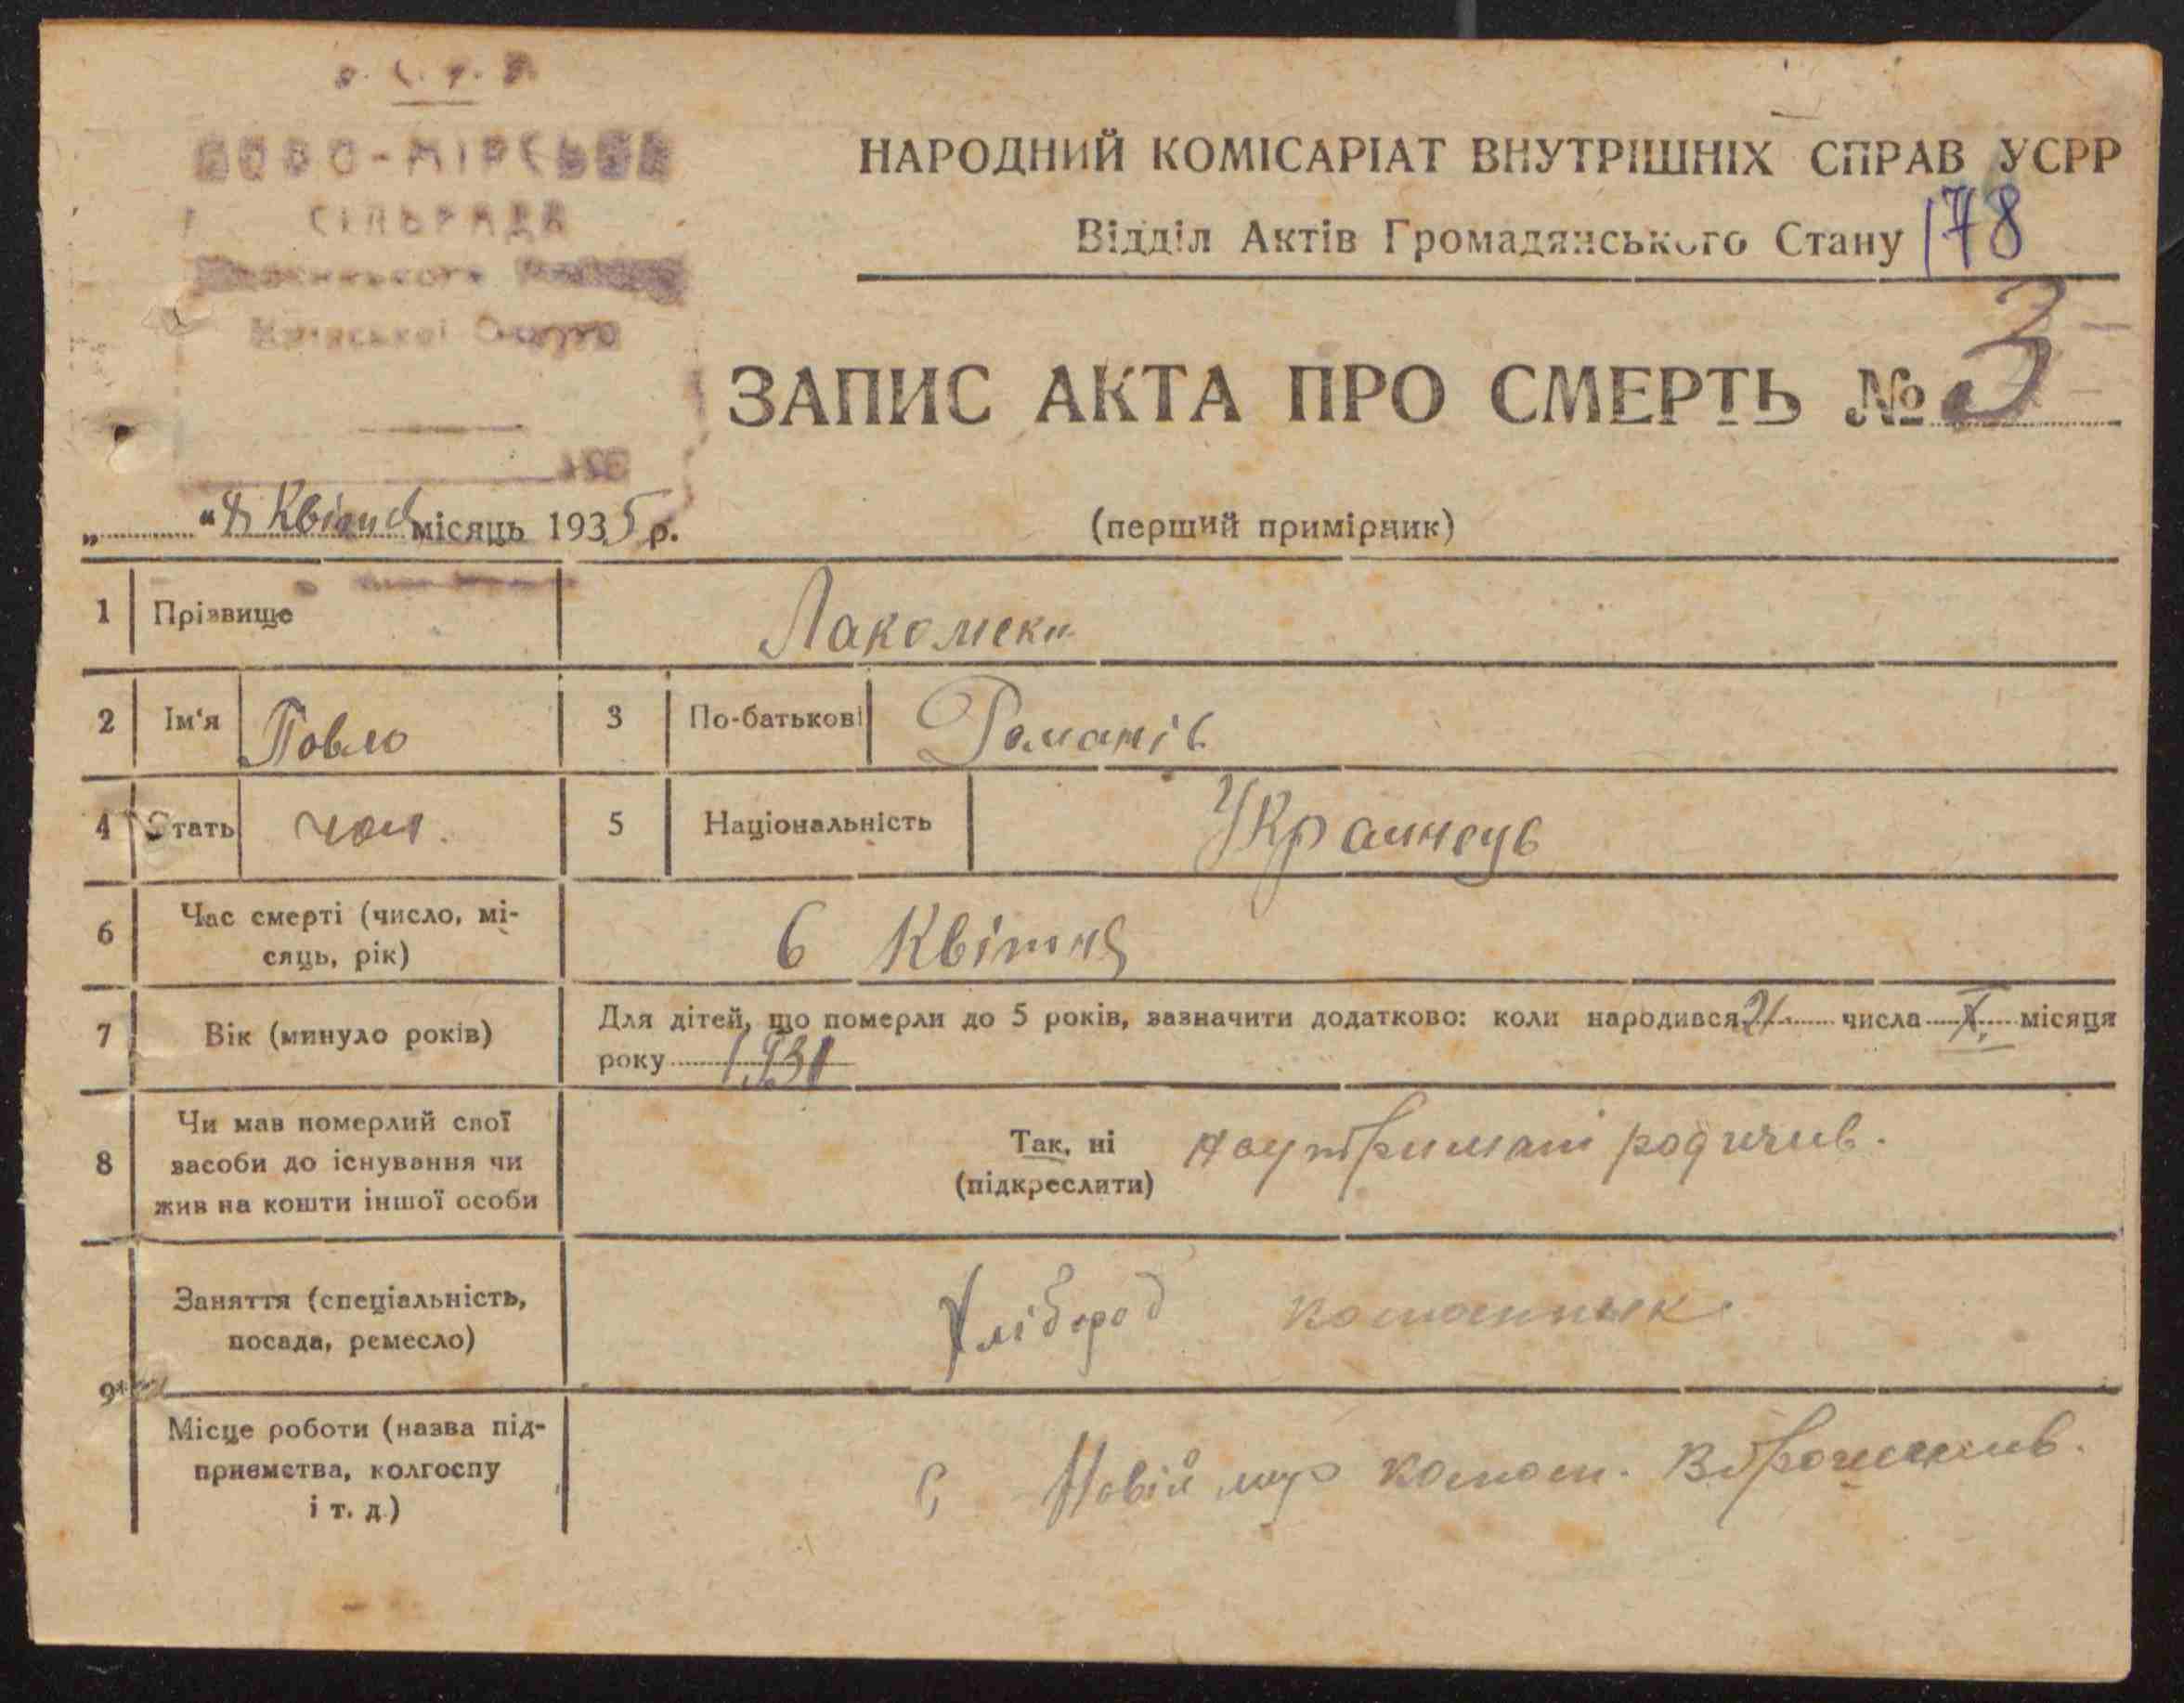 СІЛЬРАДА
НАРОДНИЙ КОМІСАРІАТ ВНУТРІШНІХ СПРАВ УСРР
Відділ Актів Громадянського Стану 178
ЗАПИС АКТА ПРО СМЕРТЬ № 3
„ “ 8 Квітня місяць 1935 р.
(перший примірник)
1 Прізвище
2 Ім‘я Повло 3 По-батькові Романів
4 Стать чол. 5 Національність Украинець
6 Час смерті (число, мі-
сяць, рік) 6 Квітня
7 Вік (минуло років) Для дітей, що померли до 5 років, зазначити додатково: коли народився 21 числа X. місяця
року 1931
8 Чи мав померлий свої
засоби до існування чи
жив на кошти іншої особи
Так, ні
(підкреслити)
родичив.
Заняття (спеціальність,
посада, ремесло) Хлібороб
9
Місце роботи (назва під-
приємства, колгоспу
і т. д.)